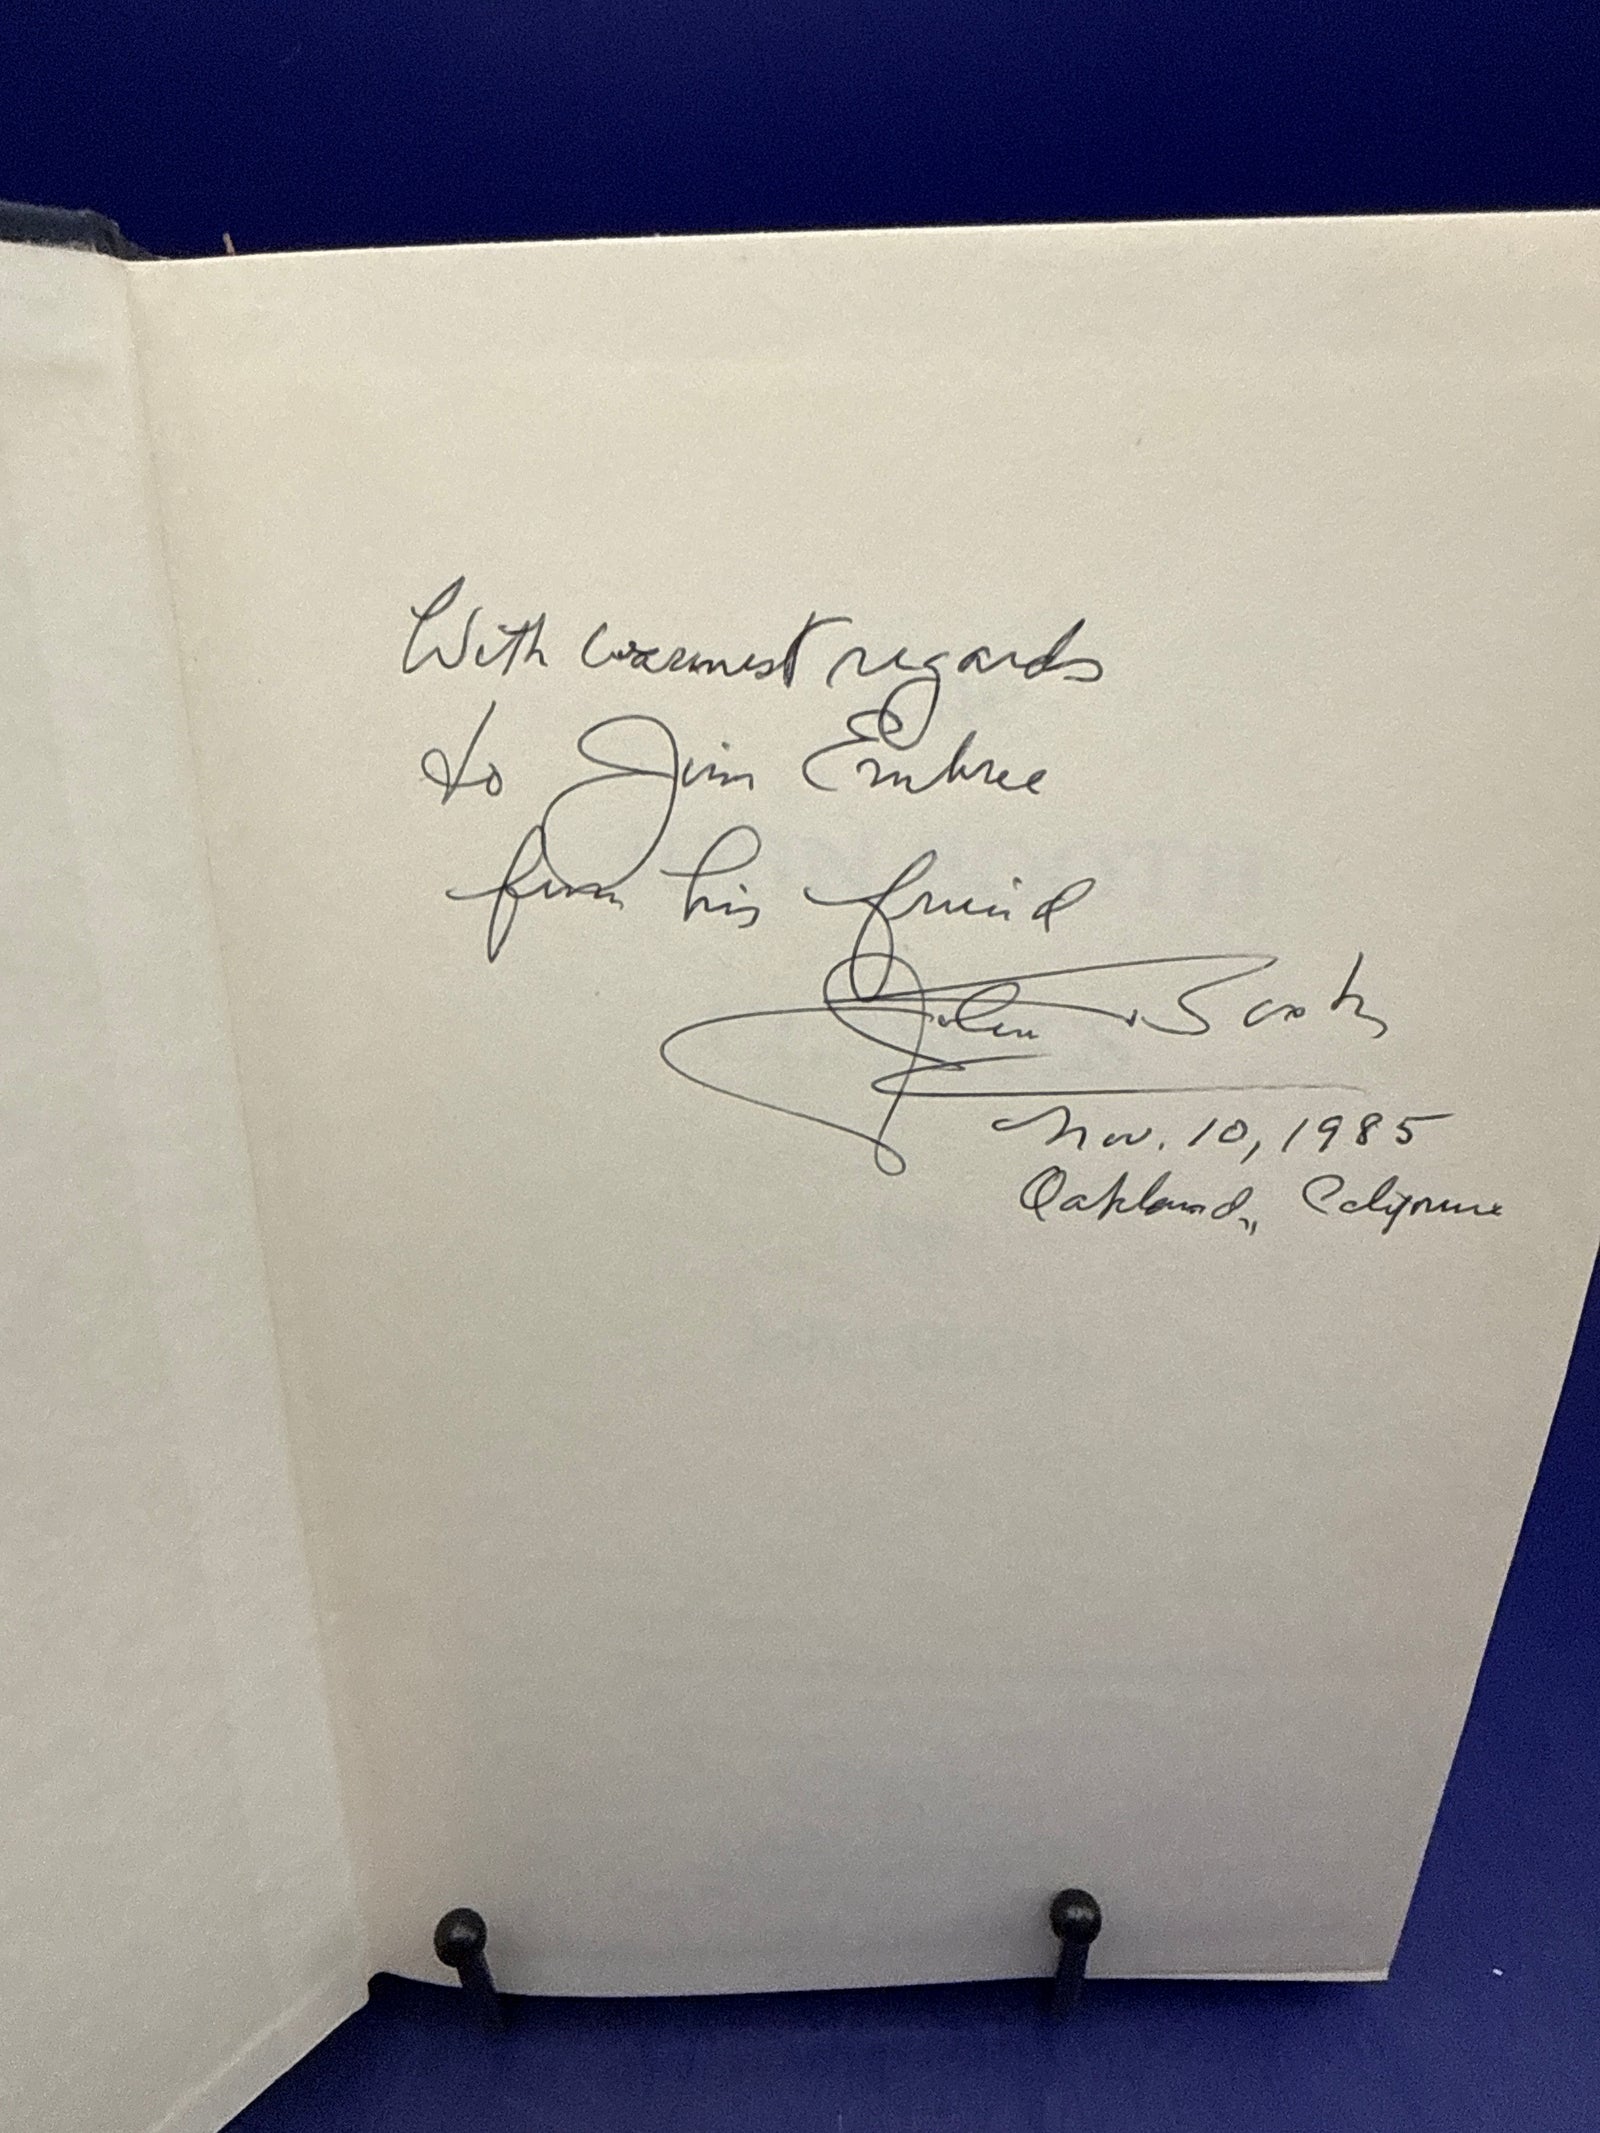 With warmest regards
to Jim Embree
from his friend
John
Nov. 10, 1985
Oakland, California